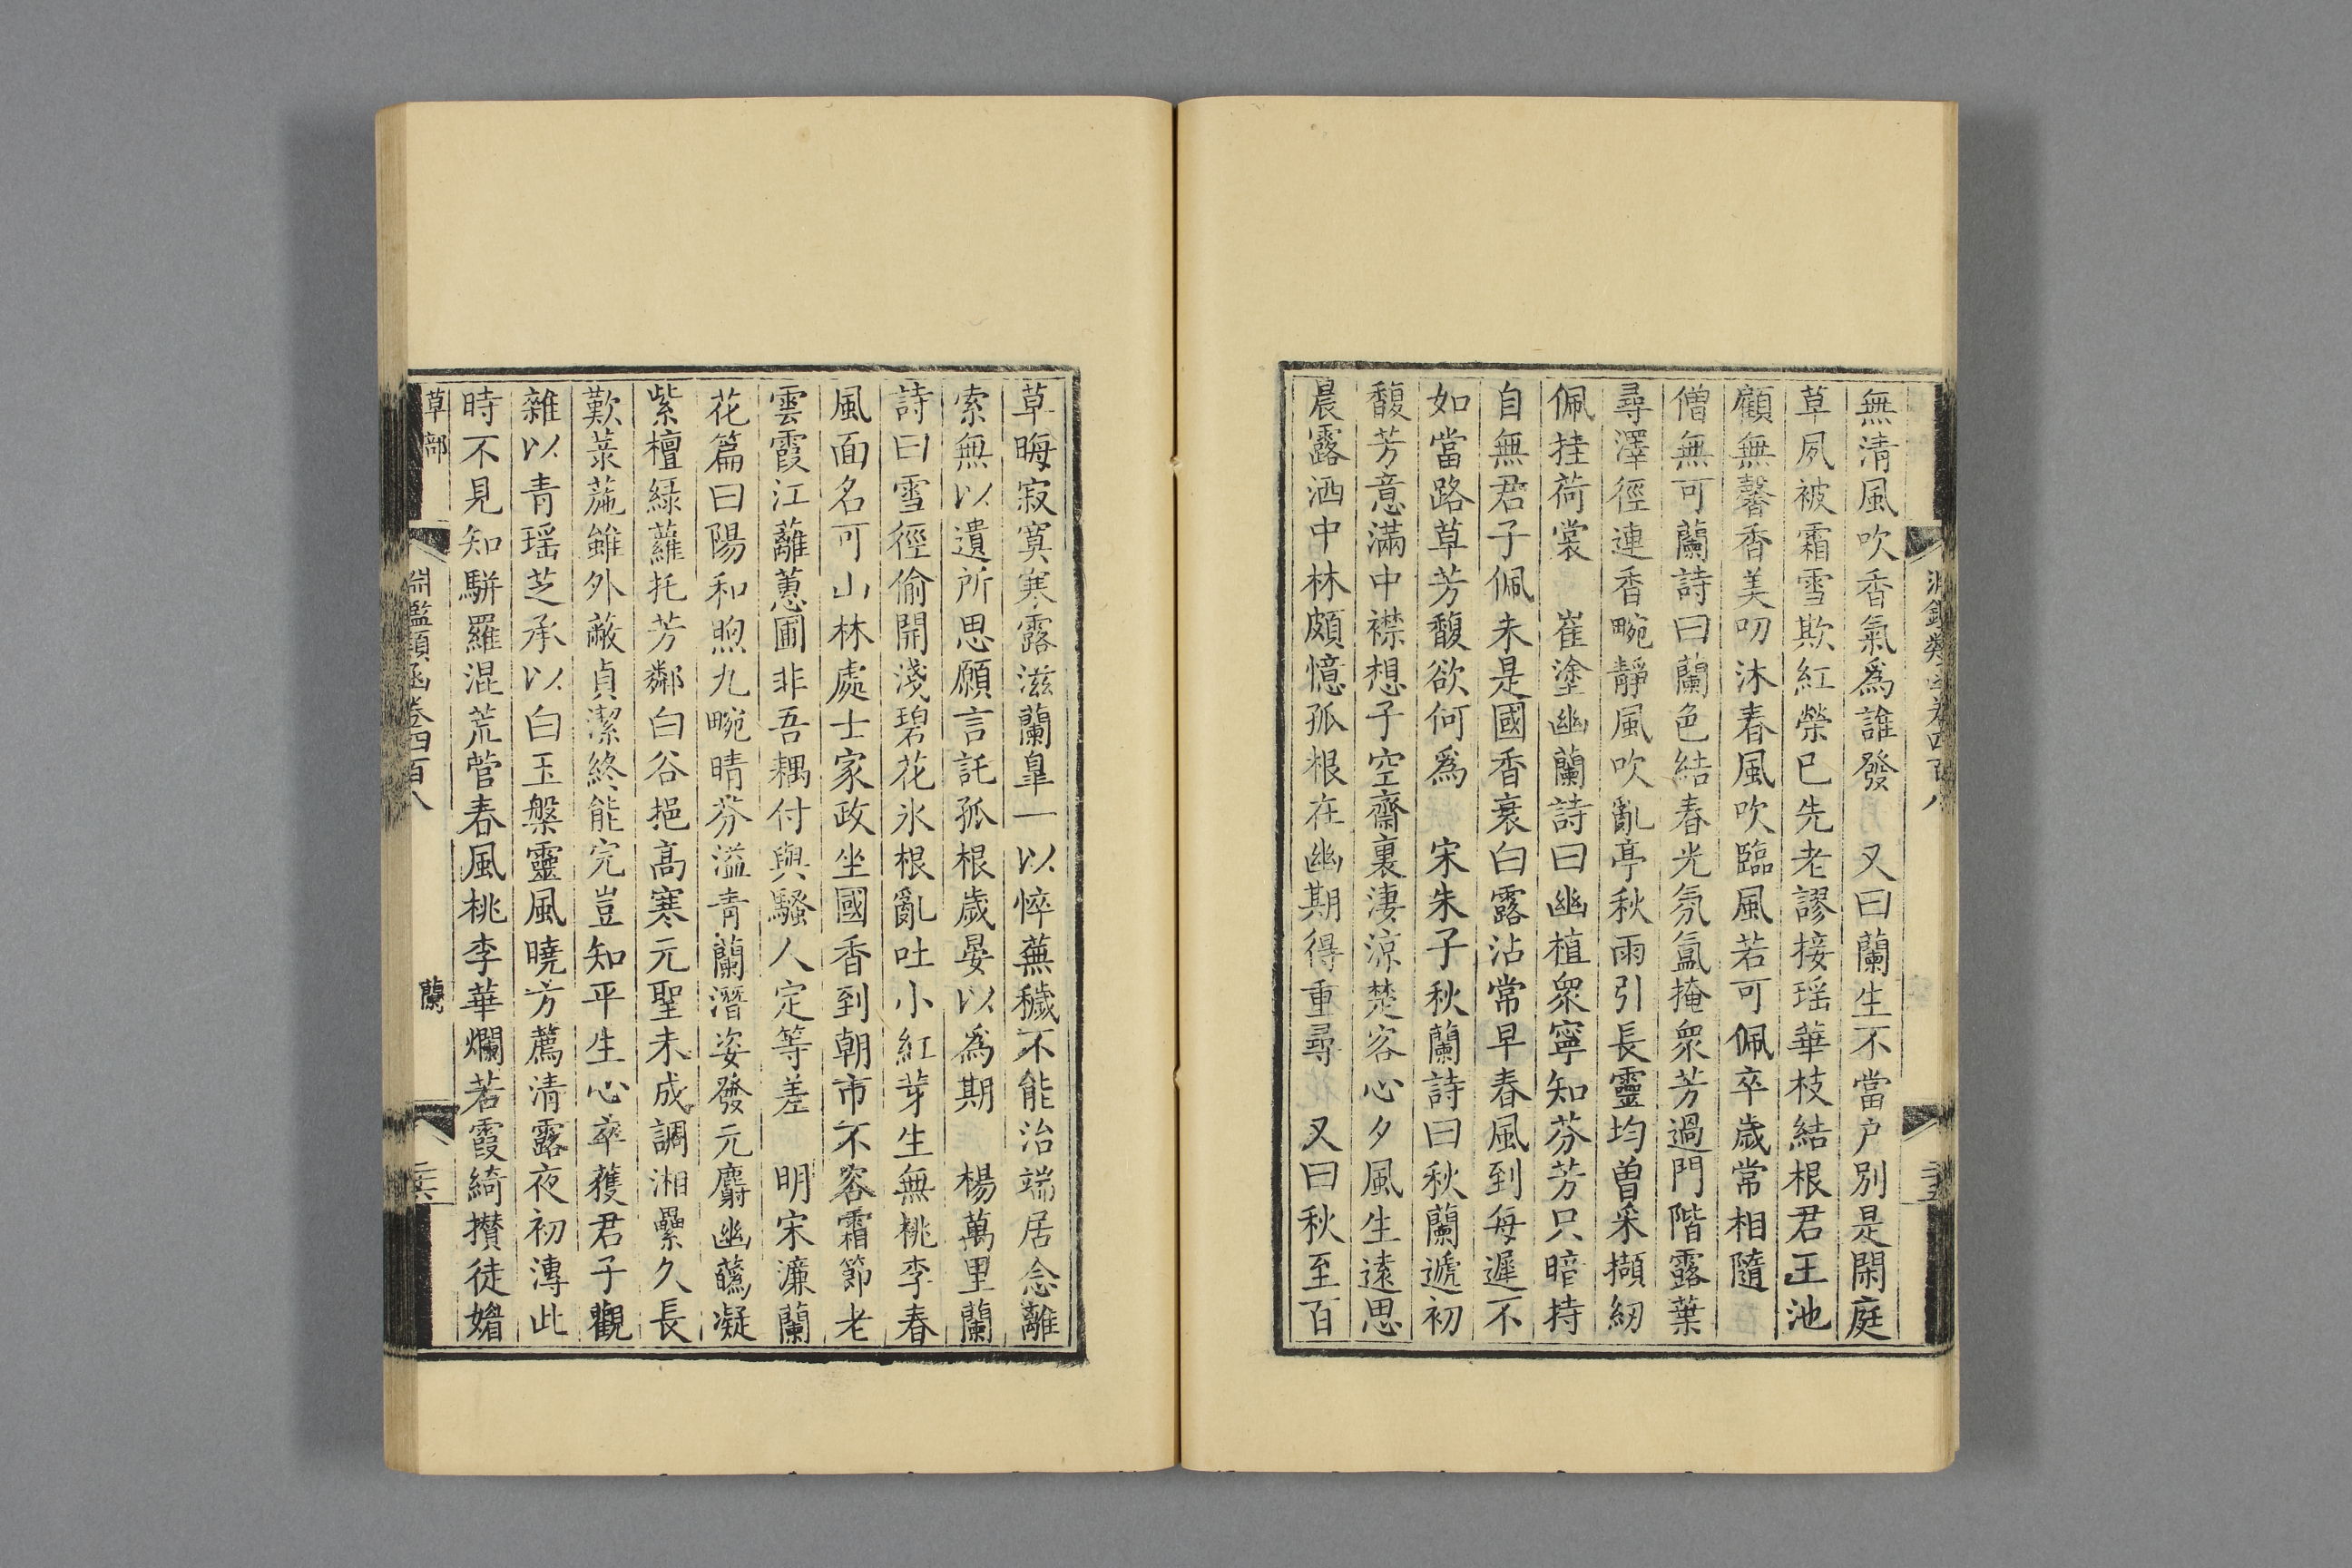 無清風吹香氣爲誰發 又曰蘭生不當戶別是閑庭
草夙被霜雪欺紅榮已先老謬接瑶華枝結根君王池
顧無馨香美叨沐春風吹臨風若可佩卒歲常相隨
僧無可蘭詩曰蘭色結春光氛氳掩衆芳過門階露葉
尋澤徑連香畹靜風吹亂亭秋雨引長靈均曽采擷紉
佩挂荷裳 崔塗幽蘭詩曰幽植衆寧知芬芳只暗持
自無君子佩未是國香衰白露沾常早春風到每遲不
如當路草芳馥欲何爲 宋朱子秋蘭詩曰秋蘭遞初
馥芳意滿中襟想子空齋裏淒涼楚客心夕風生遠思
晨露洒中林頗憶孤根在幽期得重尋 又曰秋至百
草晦寂寞寒露滋蘭皐一以悴蕪穢不能治端居念離
索無以遺所思願言託孤根歲晏以爲期 楊萬里蘭
詩曰雪徑偷開淺碧花氷根亂吐小紅芽生無桃李春
風面名可山林處士家政坐國香到朝市不容霜節老
雲霞江蘺蕙圃非吾耦付與騷人定等差 明宋濂蘭
花篇曰陽和煦九畹晴芬溢青蘭潛姿發元麝幽䕺凝
紫檀緑蘿托芳鄰白谷挹高寒元聖未成調湘纍久長
歎菉葹雖外蔽貞潔終能完豈知平生心卒獲君子觀
雜以青瑶芝承以白玉槃靈風曉方薦清露夜初漙此
時不見知駢羅混荒菅春風桃李華爛若霞綺攢徒媚
草部 淵鑑類函卷四百八 蘭 二十六